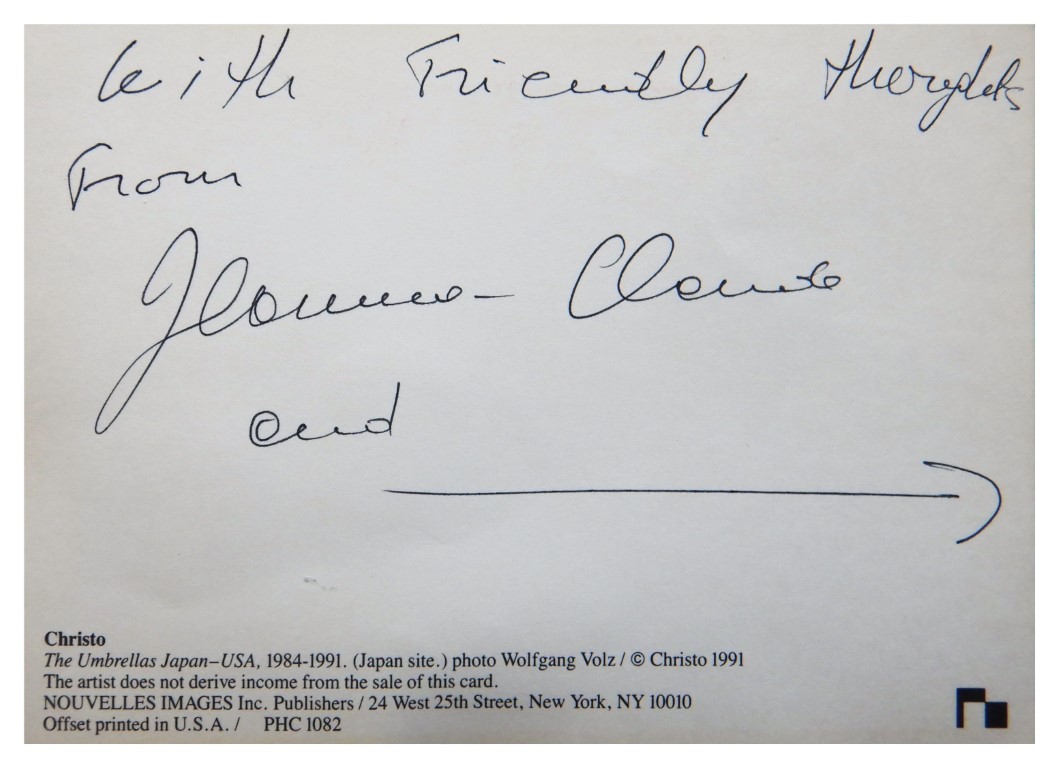 with Friendly thoughts
From
Jeanne-Claude
and
Christo
The Umbrellas Japan–USA, 1984-1991. (Japan site.) photo Wolfgang Volz / © Christo 1991
The artist does not derive income from the sale of this card.
NOUVELLES IMAGES Inc. Publishers / 24 West 25th Street, New York, NY 10010
Offset printed in U.S.A. / PHC 1082